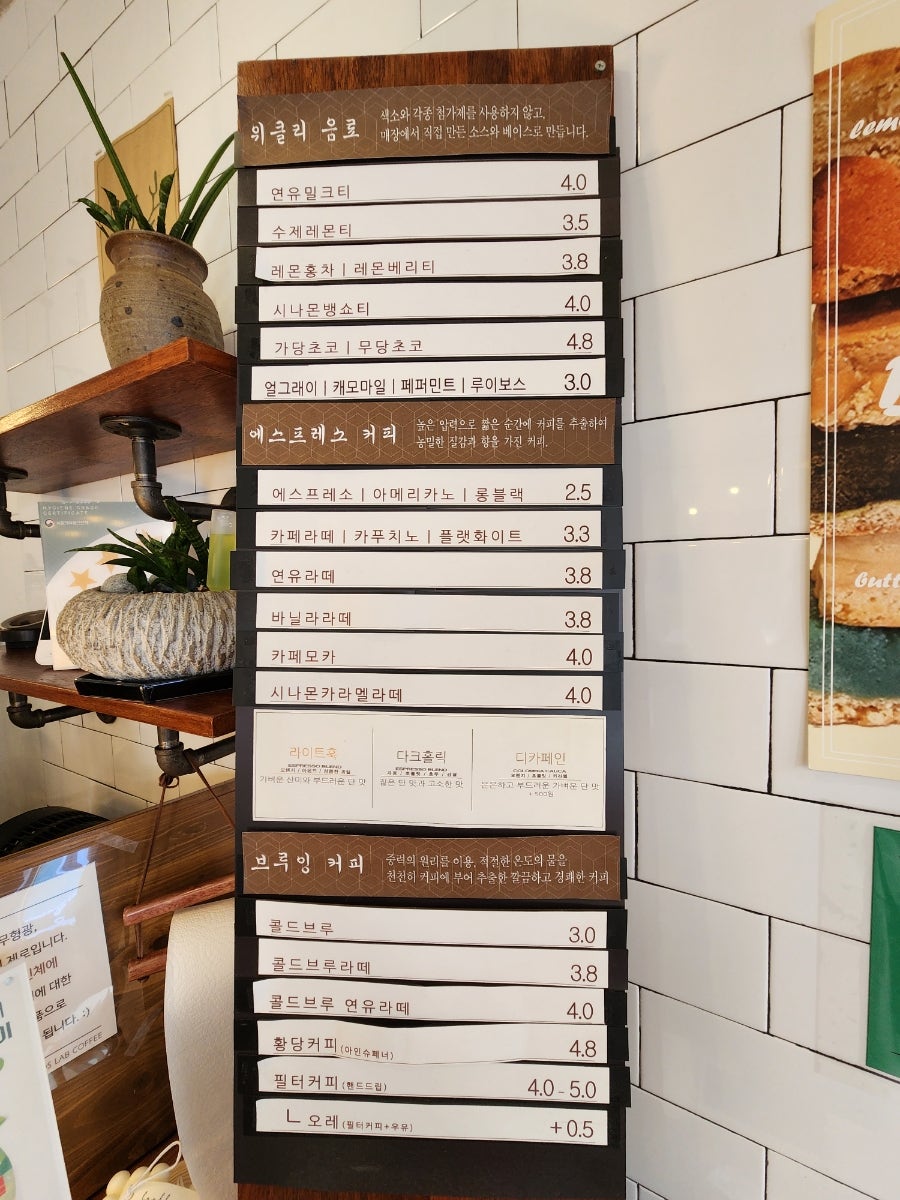 위클리 음료
색소와 각종 첨가제를 사용하지 않고,
매장에서 직접 만든 소스와 베이스로 만듭니다.
연유밀크티 4.0
수제레몬티 3.5
레몬홍차 | 레몬베리티 3.8
시나몬뱅쇼티 4.0
가당초코 | 무당초코 4.8
얼그레이 | 캐모마일 | 페퍼민트 | 루이보스 3.0
에스프레소 커피
높은 압력으로 짧은 순간에 커피를 추출하여
농밀한 질감과 향을 가진 커피.
에스프레소 | 아메리카노 | 롱블랙 2.5
카페라떼 | 카푸치노 | 플랫화이트 3.3
연유라떼 3.8
바닐라라떼 3.8
카페모카 4.0
시나몬카라멜라떼 4.0
라이트홀
ESPRESSO BLEND
가벼운 산미와 부드러운 단 맛
다크홀릭
ESPRESSO BLEND
짙은 단 맛과 고소한 맛
디카페인
COLOMBIA CAUCA
은은하고 부드러운 가벼운 단 맛
+500원
브루잉 커피
중력의 원리를 이용, 적절한 온도의 물을
천천히 커피에 부어 추출한 깔끔하고 경쾌한 커피
콜드브루 3.0
콜드브루라떼 3.8
콜드브루 연유라떼 4.0
황당커피(아인슈페너) 4.8
필터커피(핸드드립) 4.0 - 5.0
ㄴ 오레(필터커피+우유) +0.5
HYGIENE GRADE
CERTIFICATE
무형광,
제로입니다.
인체에
에 대한
품으로
됩니다. :)
LAB COFFEE